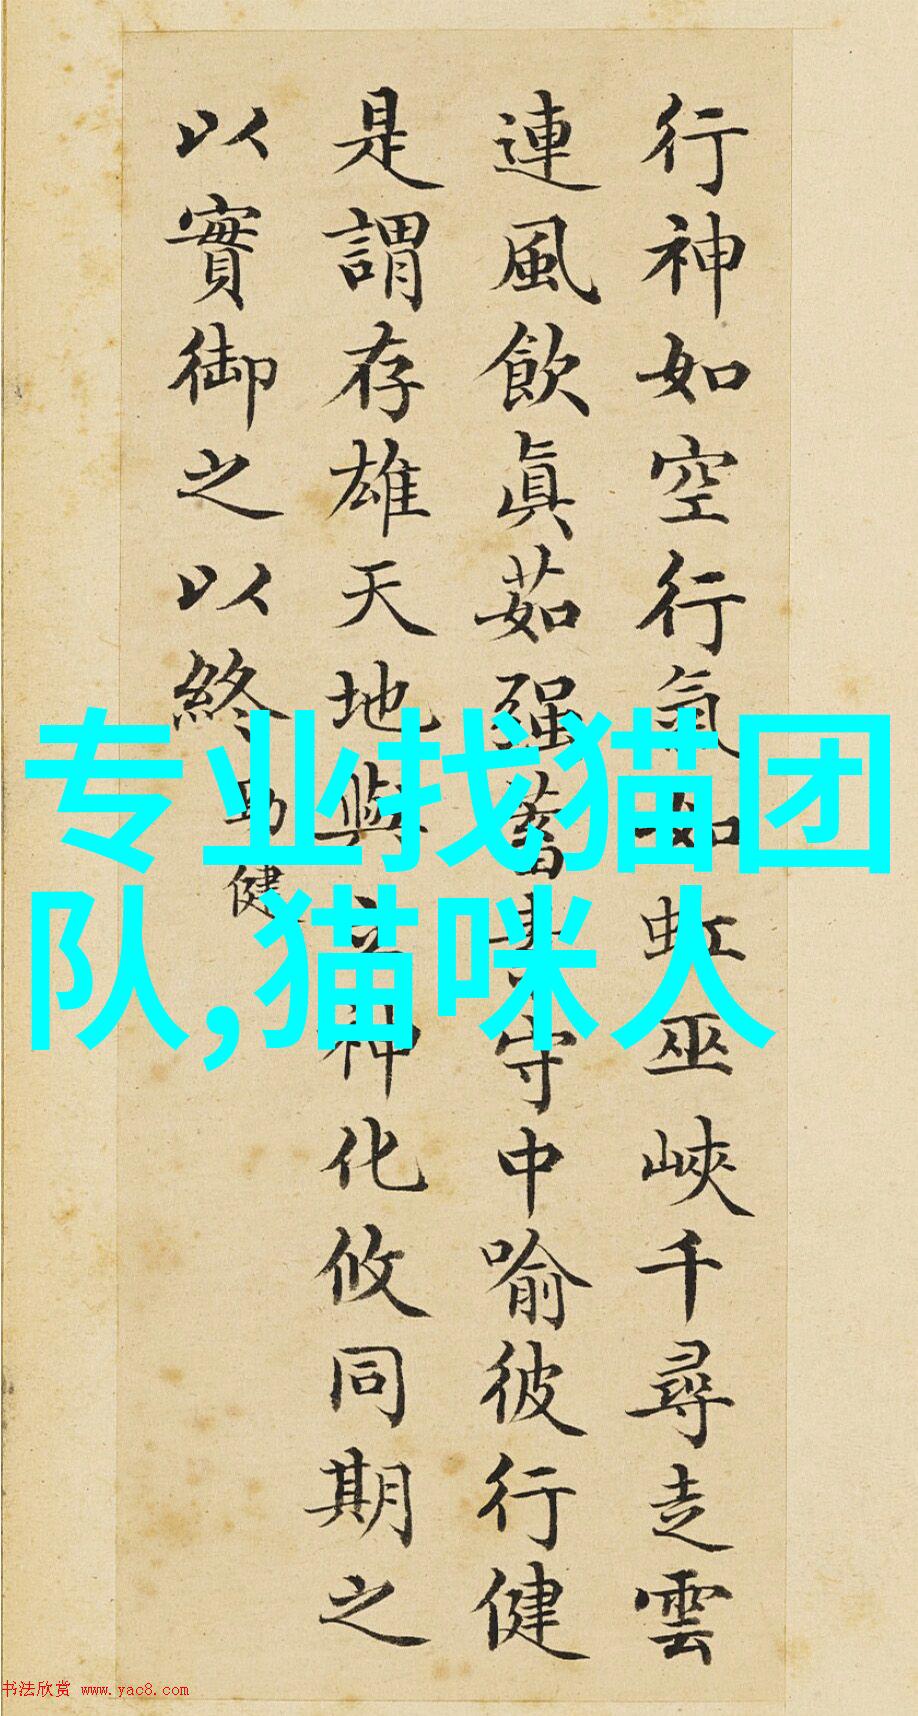 行神如空行氣如虹巫峽千尋走雲
連風飲眞茹强蓄守中喻彼行健
是謂存雄天地與神化攸同期之
以實御之以終
勁健
专业找猫团
队,猫咪人
书法欣赏 www.yac8.com